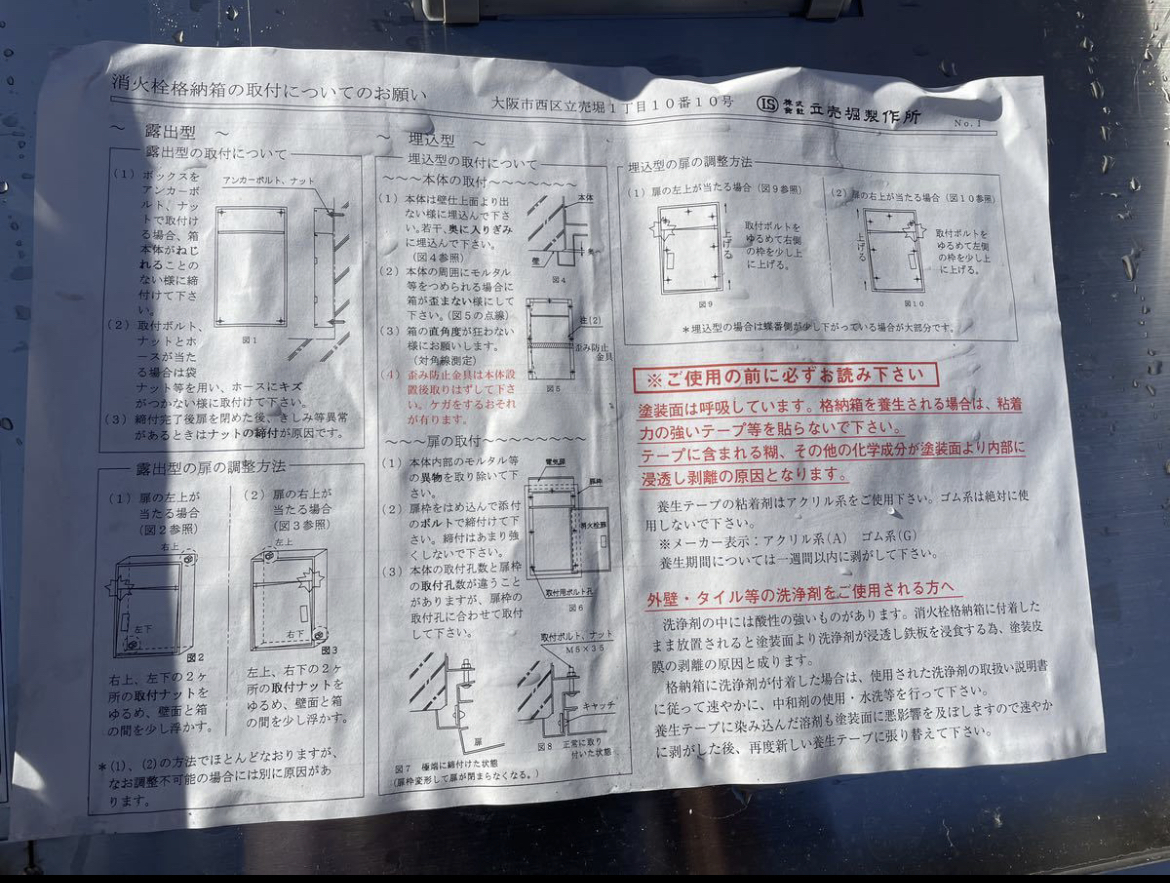 消火栓格納箱の取付についてのお願い
大阪市西区立売堀1丁目10番10号
LS 株式会社 立売堀製作所
No.1
～ 露出型 ～
露出型の取付について
(1) ボックスを
アンカーボ
ルト、ナッ
トで取付け
る場合、箱
本体がねじ
れることの
ない様に締
付けて下さ
い。
アンカーボルト、ナット
図1
(2) 取付ボルト、
ナットとホ
ースが当た
る場合は袋
ナット等を用い、ホースにキズ
がつかない様に取付けて下さい。
(3) 締付完了後扉を閉めた後、きしみ等異常
があるときはナットの締付が原因です。
露出型の扉の調整方法
(1) 扉の左上が
当たる場合
(図2参照)
右上
左下
図2
右上、左下の2ヶ
所の取付ナットを
ゆるめ、壁面と箱
の間を少し浮かす。
(2) 扉の右上が
当たる場合
(図3参照)
左上
右下
図3
左上、右下の2ヶ
所の取付ナットを
ゆるめ、壁面と箱
の間を少し浮かす。
*(1)、(2)の方法でほとんどなおりますが、
なお調整不可能の場合には別に原因があ
ります。
～ 埋込型 ～
埋込型の取付について
～～～本体の取付～～～～～～～
(1) 本体は壁仕上面より出
ない様に埋込んで下さ
い。若干、奥に入りぎみ
に埋込んで下さい。
(図4参照)
本体
壁
図4
(2) 本体の周囲にモルタル
等をつめられる場合に
箱が歪まない様にして
下さい。(図5の点線)
(3) 箱の直角度が狂わない
様にお願いします。
(対角線測定)
(4) 歪み防止金具は本体設
置後取りはずして下さ
い。ケガをするおそれ
が有ります。
注(2)
歪み防止
金具
図5
～～～扉の取付～～～～～～～～
(1) 本体内部のモルタル等
の異物を取り除いて下
さい。
(2) 扉枠をはめ込んで添付
のボルトで締付けて下
さい。締付はあまり強
くしないで下さい。
(3) 本体の取付孔数と扉枠
の取付孔数が違うこと
がありますが、扉枠の
取付孔に合わせて取付
して下さい。
電気扉
扉枠
消火栓扉
取付用ボルト孔
図6
取付ボルト、ナット
M5×35
扉
図7 極端に締付けた状態
(扉枠変形して扉が閉まらなくなる。)
キャッチ
図8 正常に取り
付いた状態
埋込型の扉の調整方法
(1) 扉の左上が当たる場合 (図9参照)
上げる
取付ボルトを
ゆるめて右側
の枠を少し上
に上げる。
図9
(2) 扉の右上が当たる場合 (図10参照)
上げる
取付ボルトを
ゆるめて左側
の枠を少し上
に上げる。
図10
*埋込型の場合は蝶番側が少し下がっている場合が大部分です。
※ご使用の前に必ずお読み下さい
塗装面は呼吸しています。格納箱を養生される場合は、粘着
力の強いテープ等を貼らないで下さい。
テープに含まれる糊、その他の化学成分が塗装面より内部に
浸透し剥離の原因となります。
養生テープの粘着剤はアクリル系をご使用下さい。ゴム系は絶対に使
用しないで下さい。
※メーカー表示:アクリル系(A) ゴム系(G)
養生期間については一週間以内に剥がして下さい。
外壁・タイル等の洗浄剤をご使用される方へ
洗浄剤の中には酸性の強いものがあります。消火栓格納箱に付着した
まま放置されると塗装面より洗浄剤が浸透し鉄板を浸食する為、塗装皮
膜の剥離の原因と成ります。
格納箱に洗浄剤が付着した場合は、使用された洗浄剤の取扱い説明書
に従って速やかに、中和剤の使用・水洗等を行って下さい。
養生テープに染み込んだ溶剤も塗装面に悪影響を及ぼしますので速やか
に剥がした後、再度新しい養生テープに張り替えて下さい。